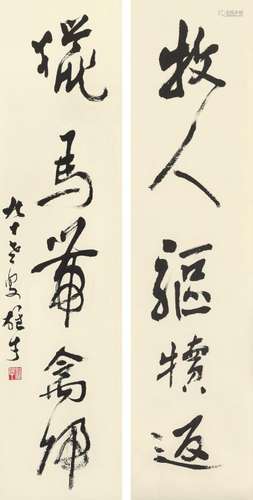 牧人驅犢返
獵馬帶禽歸
九十老叟雄才